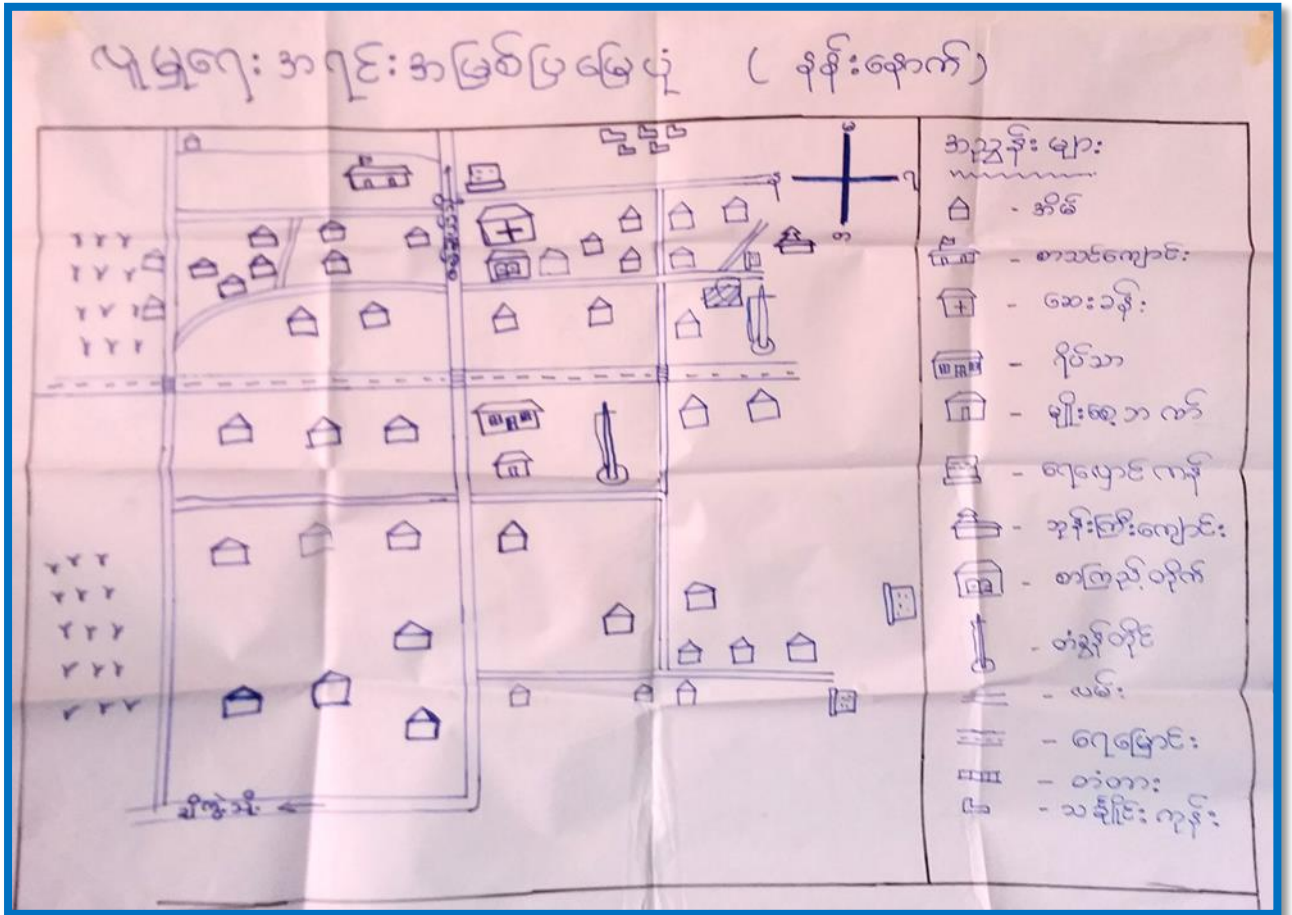 လူမှုရေး အရင်းအမြစ်ပြမြေပုံ ( နန်းနောက် )
မ
န
ရ
တ
အညွှန်းများ
- အိမ်
- စာသင်ကျောင်း
- ဆေးခန်း
- ရိပ်သာ
- မျိုးစေ့ဘဏ်
- ရေလှောင်ကန်
- ဘုန်းကြီးကျောင်း
- စာကြည့်တိုက်
- တံခွန်တိုင်
- လမ်း
- ရေမြောင်း
- တံတား
- သင်္ချိုင်းကုန်း